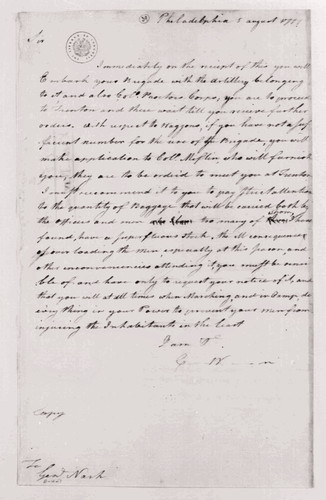 Philadelphia 5 august 177
Sir
Immediately on the receipt of this you will
Embark your Brigade with the Artillery belonging
to it and also Coll. Proctors Corps, you are to proceed
to Trenton and there wait till you receive further
orders. With respect to Waggons, if you have not a suf
ficient number for the use of the Brigade, you will
make application to Coll. Mifflin, who will furnish
you; they are to be ordered to meet you at Trenton
I must recommend it to you to pay strict attention
to the quantity of Baggage that will be carried both by
the officers and men too many of whom I have
found, have a superfluous stock, the ill consequences
of over loading the men especially at this season, and
other inconveniences attending it you must be sensi
ble of and have only to request your notice of it, and
that you will at all times when Marching and in Camp, do
every thing in your Power to prevent your men from
injuring the Inhabitants in the least
I am Sr.
Copy
To
Genl. Nash